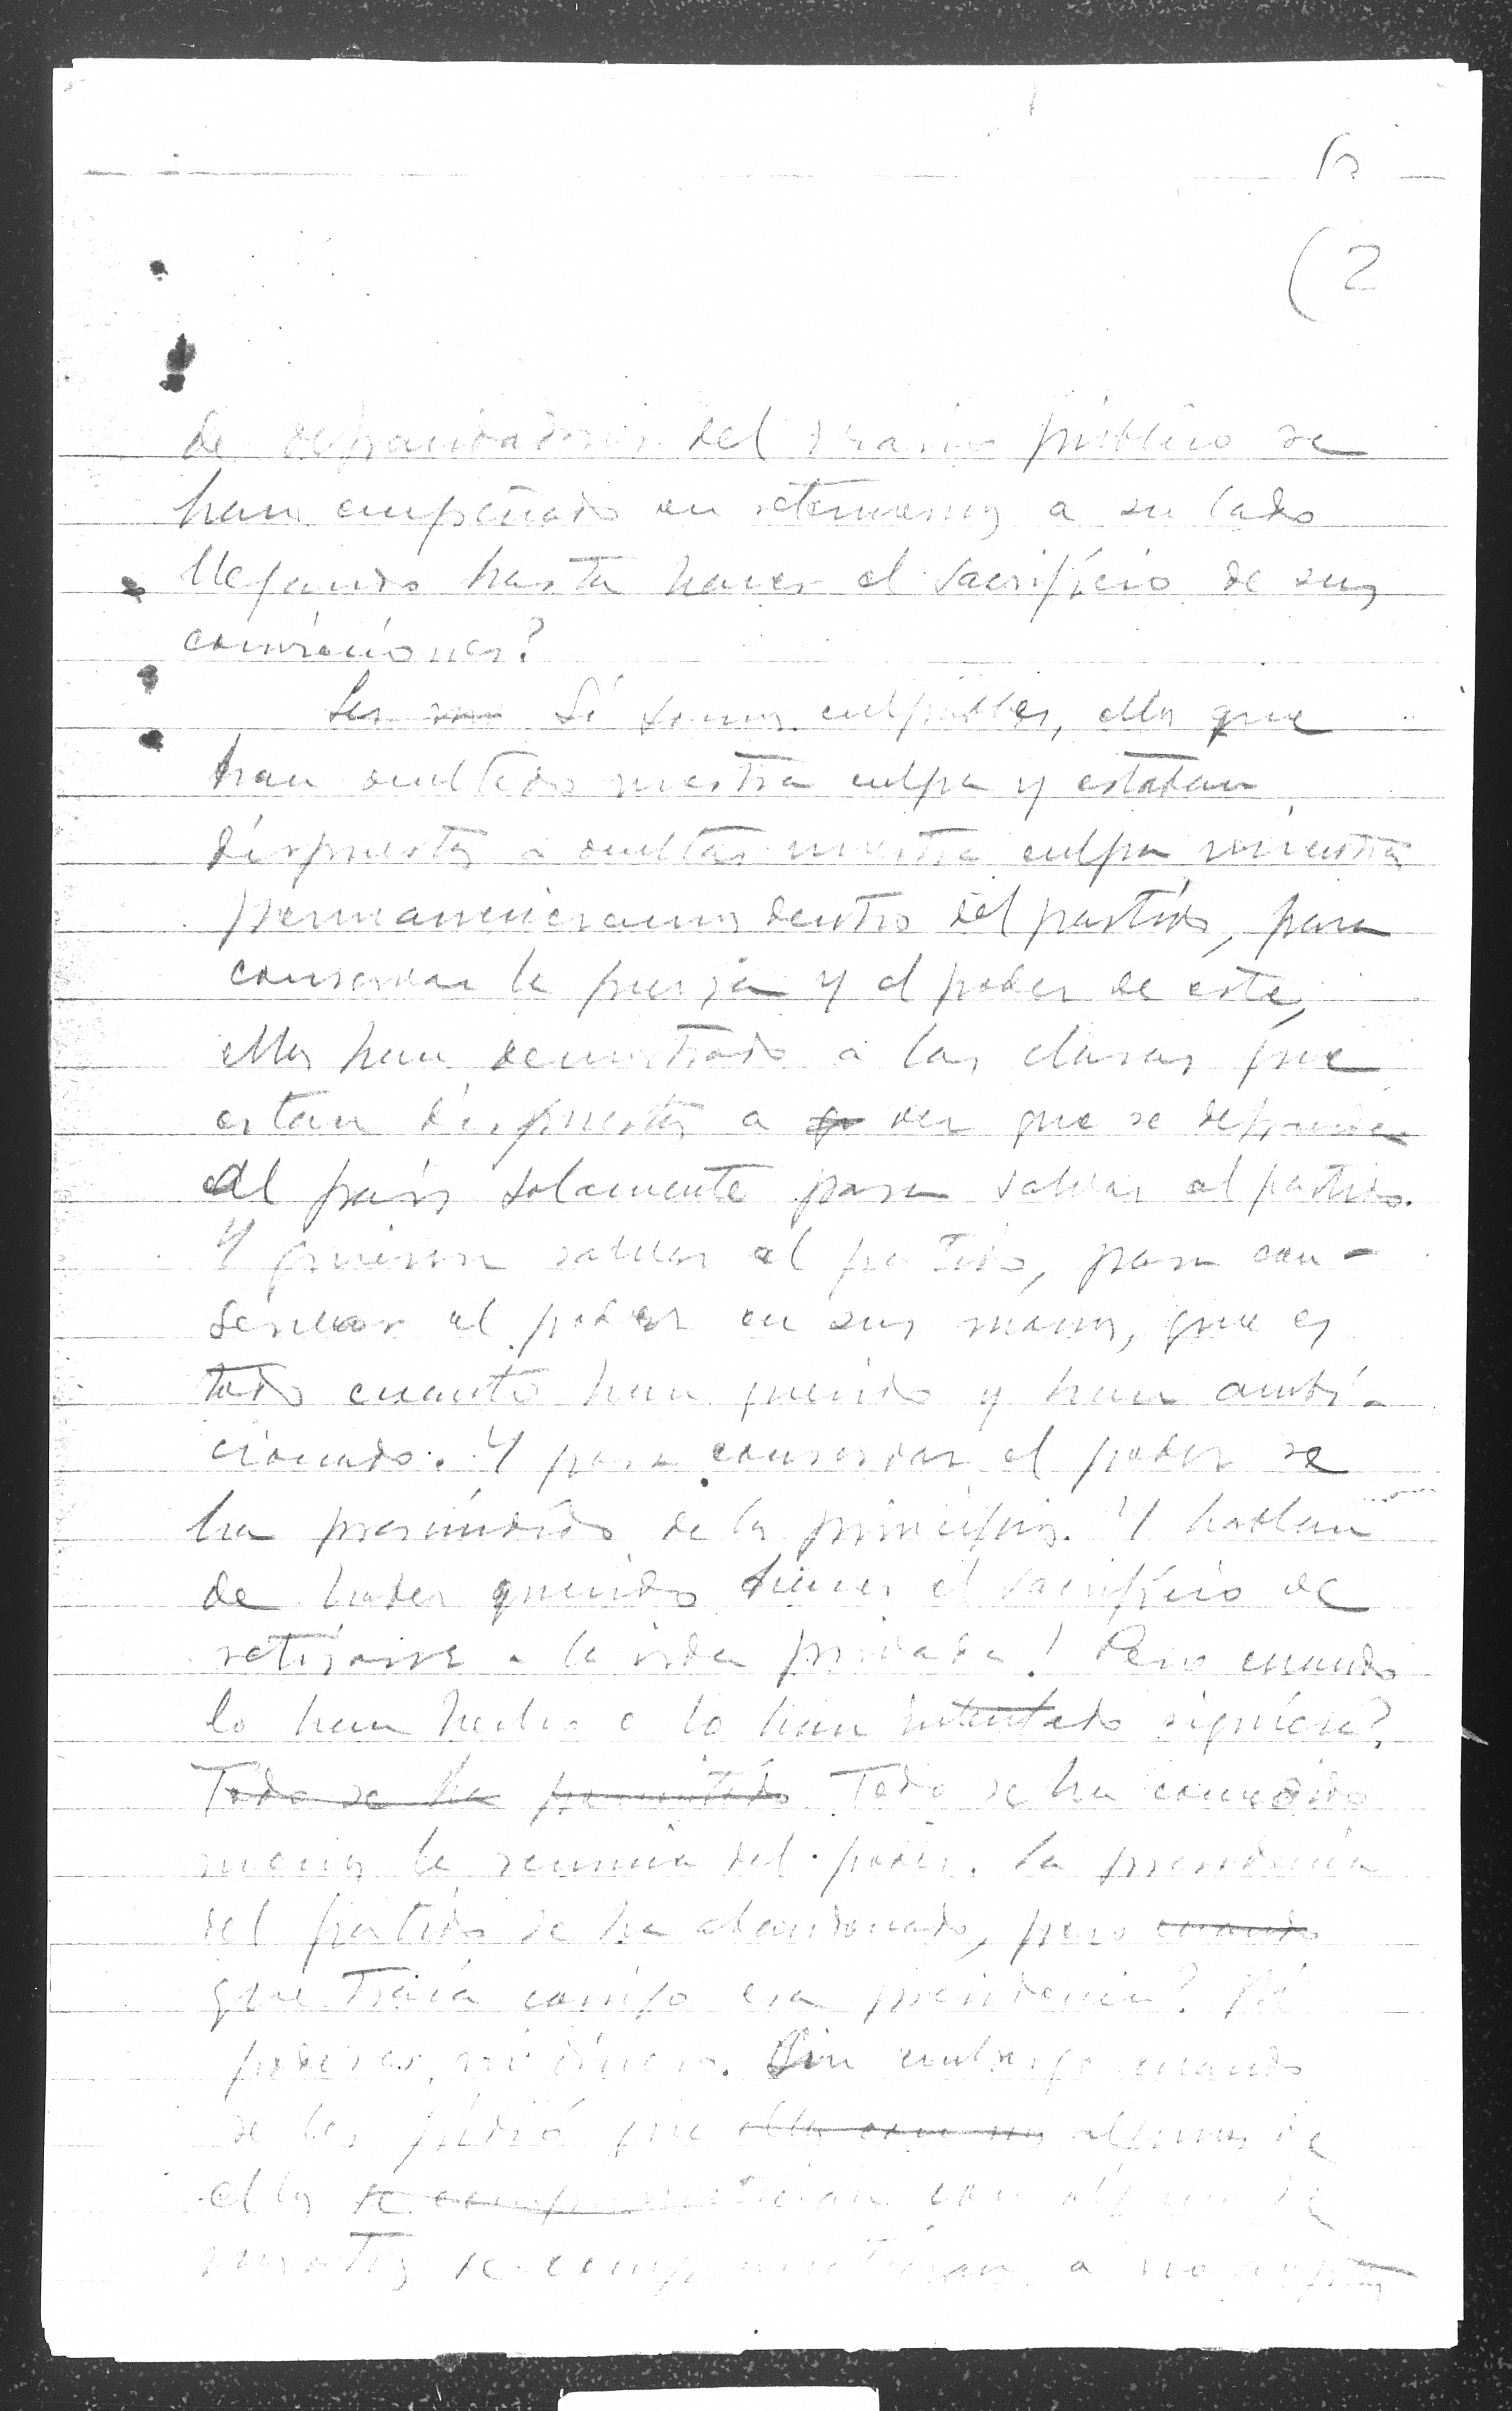 (2
de defraudadores del erario público se
han empeñado en retenernos a su lado
llegando hasta hacer el sacrificio de sus
convicciones?
Si somos culpables, ellos que
han ocultado nuestra culpa y estaban
dispuestos a ocultar nuestra culpa mientras
permanecieramos dentro del partido, para
conservar la fuerza y el poder de este,
ellos han demostrado a las claras que
estan dispuestos a ver que se defraude
al pais solamente para salvar al partido.
Y quieren salvar el partido, para con-
servar el poder en sus manos, que es
todo cuanto han querido y han ambi-
cionado. Y para conservar el poder se
ha prescindido de los principios. Y hablan
de haber querido hacer el sacrificio de
retirarse a la vida privada! Pero cuando
lo han hecho o lo han intentado siquiera?
Todo se ha permitido Todo se ha concedido
menos la renuncia del poder. La presidencia
del partido se ha abandonado, pero cuando
que traía consigo esa presidencia? Ni
poderes, ni dinero. Sin embargo cuando
se les pidió que algunos de
ellos se comprometieran con algunos de
nosotros se comprometieran a no aceptar